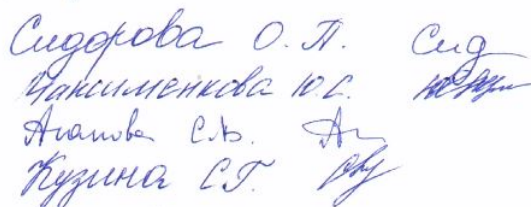 Сидорова О.П. Сид
Максименкова Ю.С.
Агапова С.В.
Кузина С.Г.